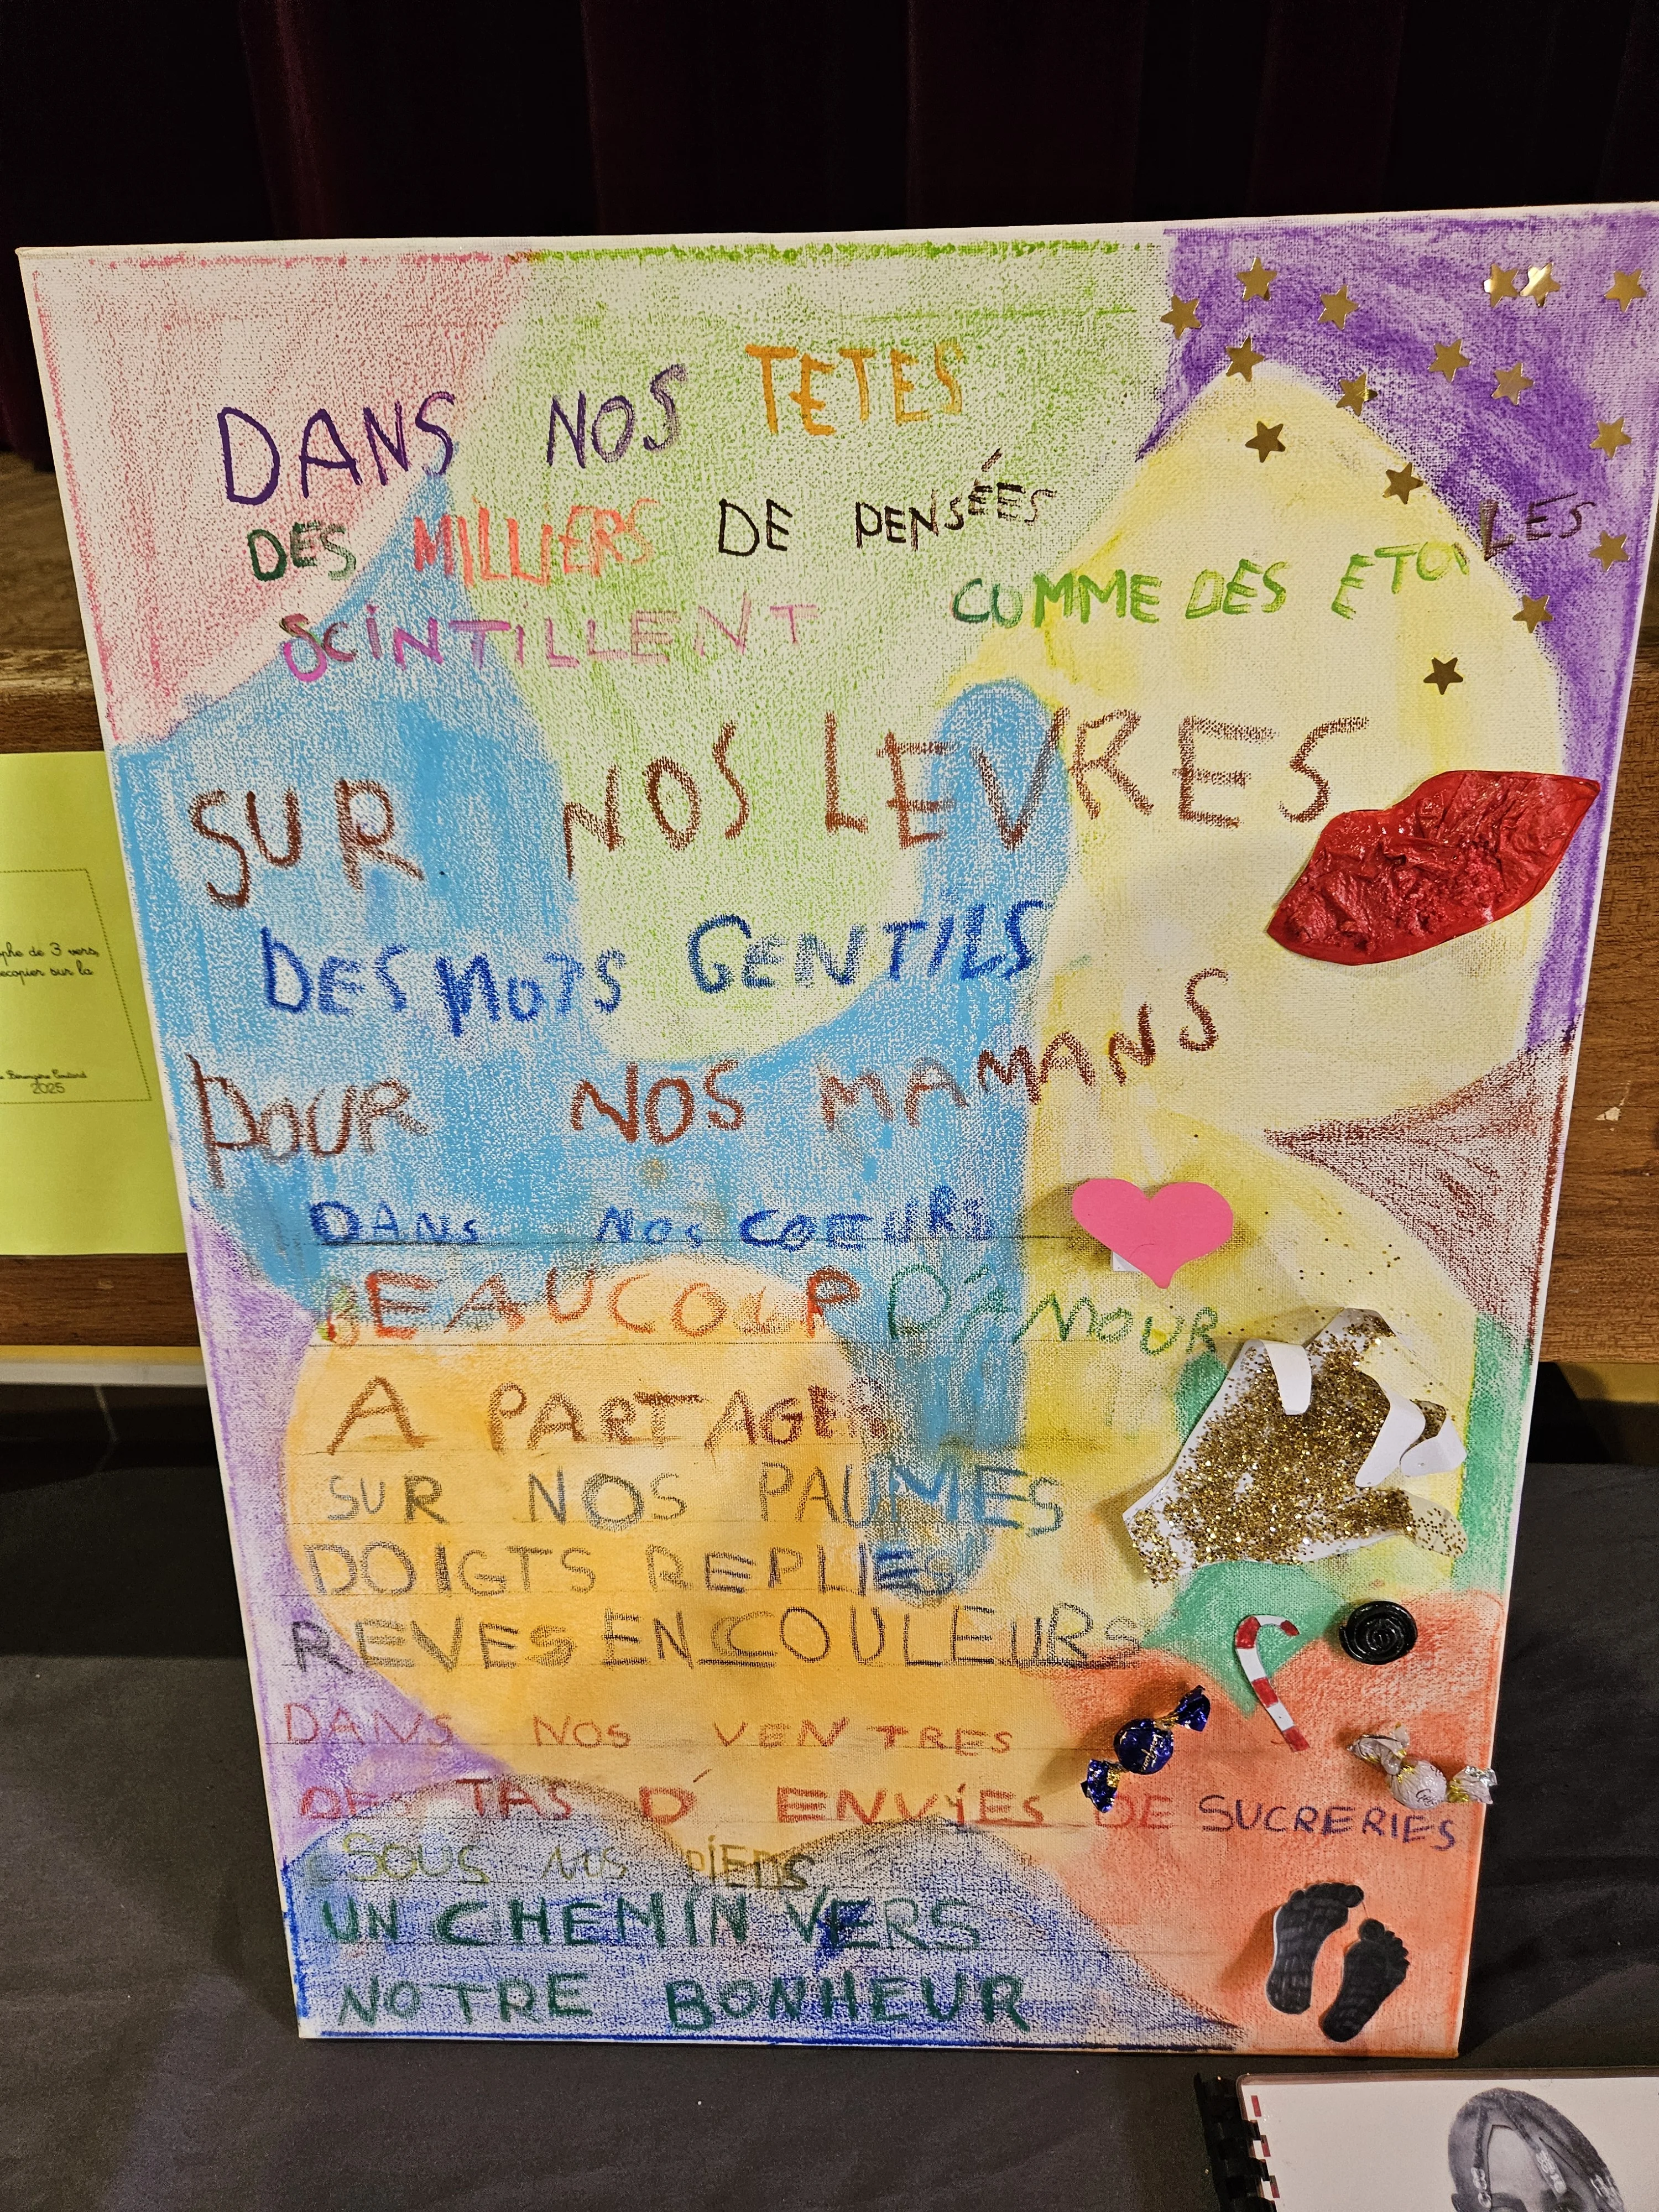 DANS NOS TETES
DES MILLIERS DE PENSÉES
SCINTILLENT COMME DES ETOILES
SUR NOS LEVRES
DES MOTS GENTILS
POUR NOS MAMANS
DANS NOS COEURS
BEAUCOUP D'AMOUR
A PARTAGER
SUR NOS PAUMES
DOIGTS REPLIES
REVES EN COULEURS
DANS NOS VENTRES
DES TAS D'ENVIES DE SUCRERIES
SOUS NOS PIEDS
UN CHEMIN VERS
NOTRE BONHEUR
phe de 3 vers,
ecopier sur la
2025